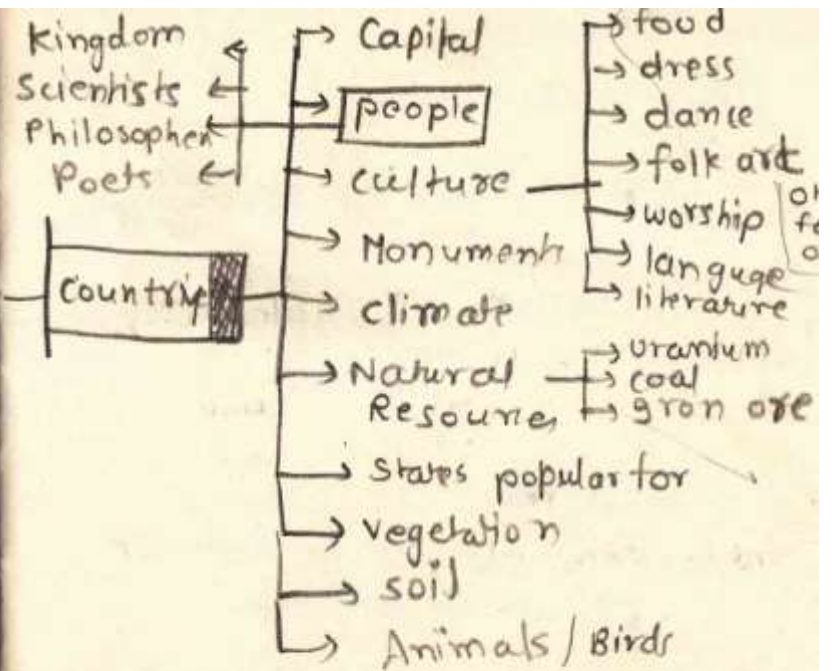 Kingdom
Scientists
Philosopher
Poets
Countrie
Capital
people
culture
Monuments
climate
Natural
Resources
States popular for
vegetation
soil
Animals / Birds
food
dress
dance
folk art
worship
languge
literature
uranium
coal
gron ore